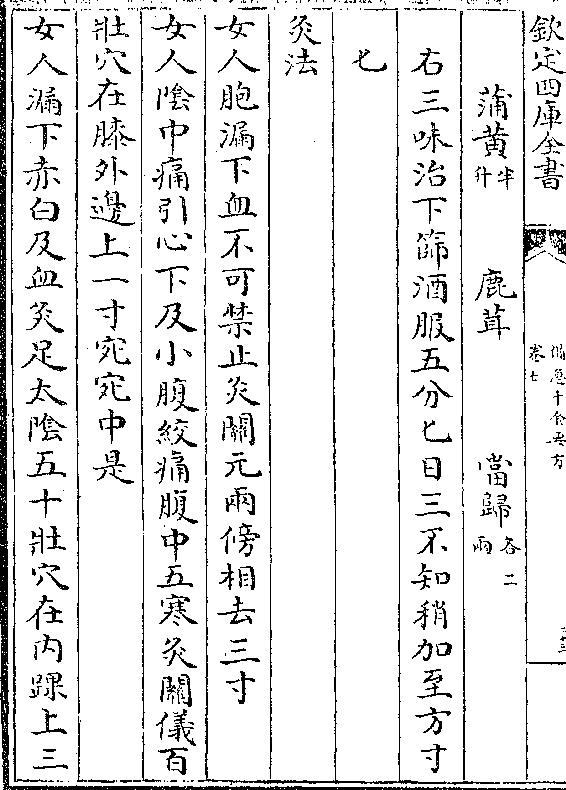 欽定四庫全書
備急千金要方
卷七
蒲黃半升 鹿茸 當歸各二兩
右三味治下篩酒服五分匕日三不知稍加至方寸
匕
灸法
女人胞漏下血不可禁止灸關元兩傍相去三寸
女人陰中痛引心下及小腹絞痛腹中五寒灸關儀百
壯穴在膝外邊上一寸宛宛中是
女人漏下赤白及血灸足太陰五十壯穴在内踝上三